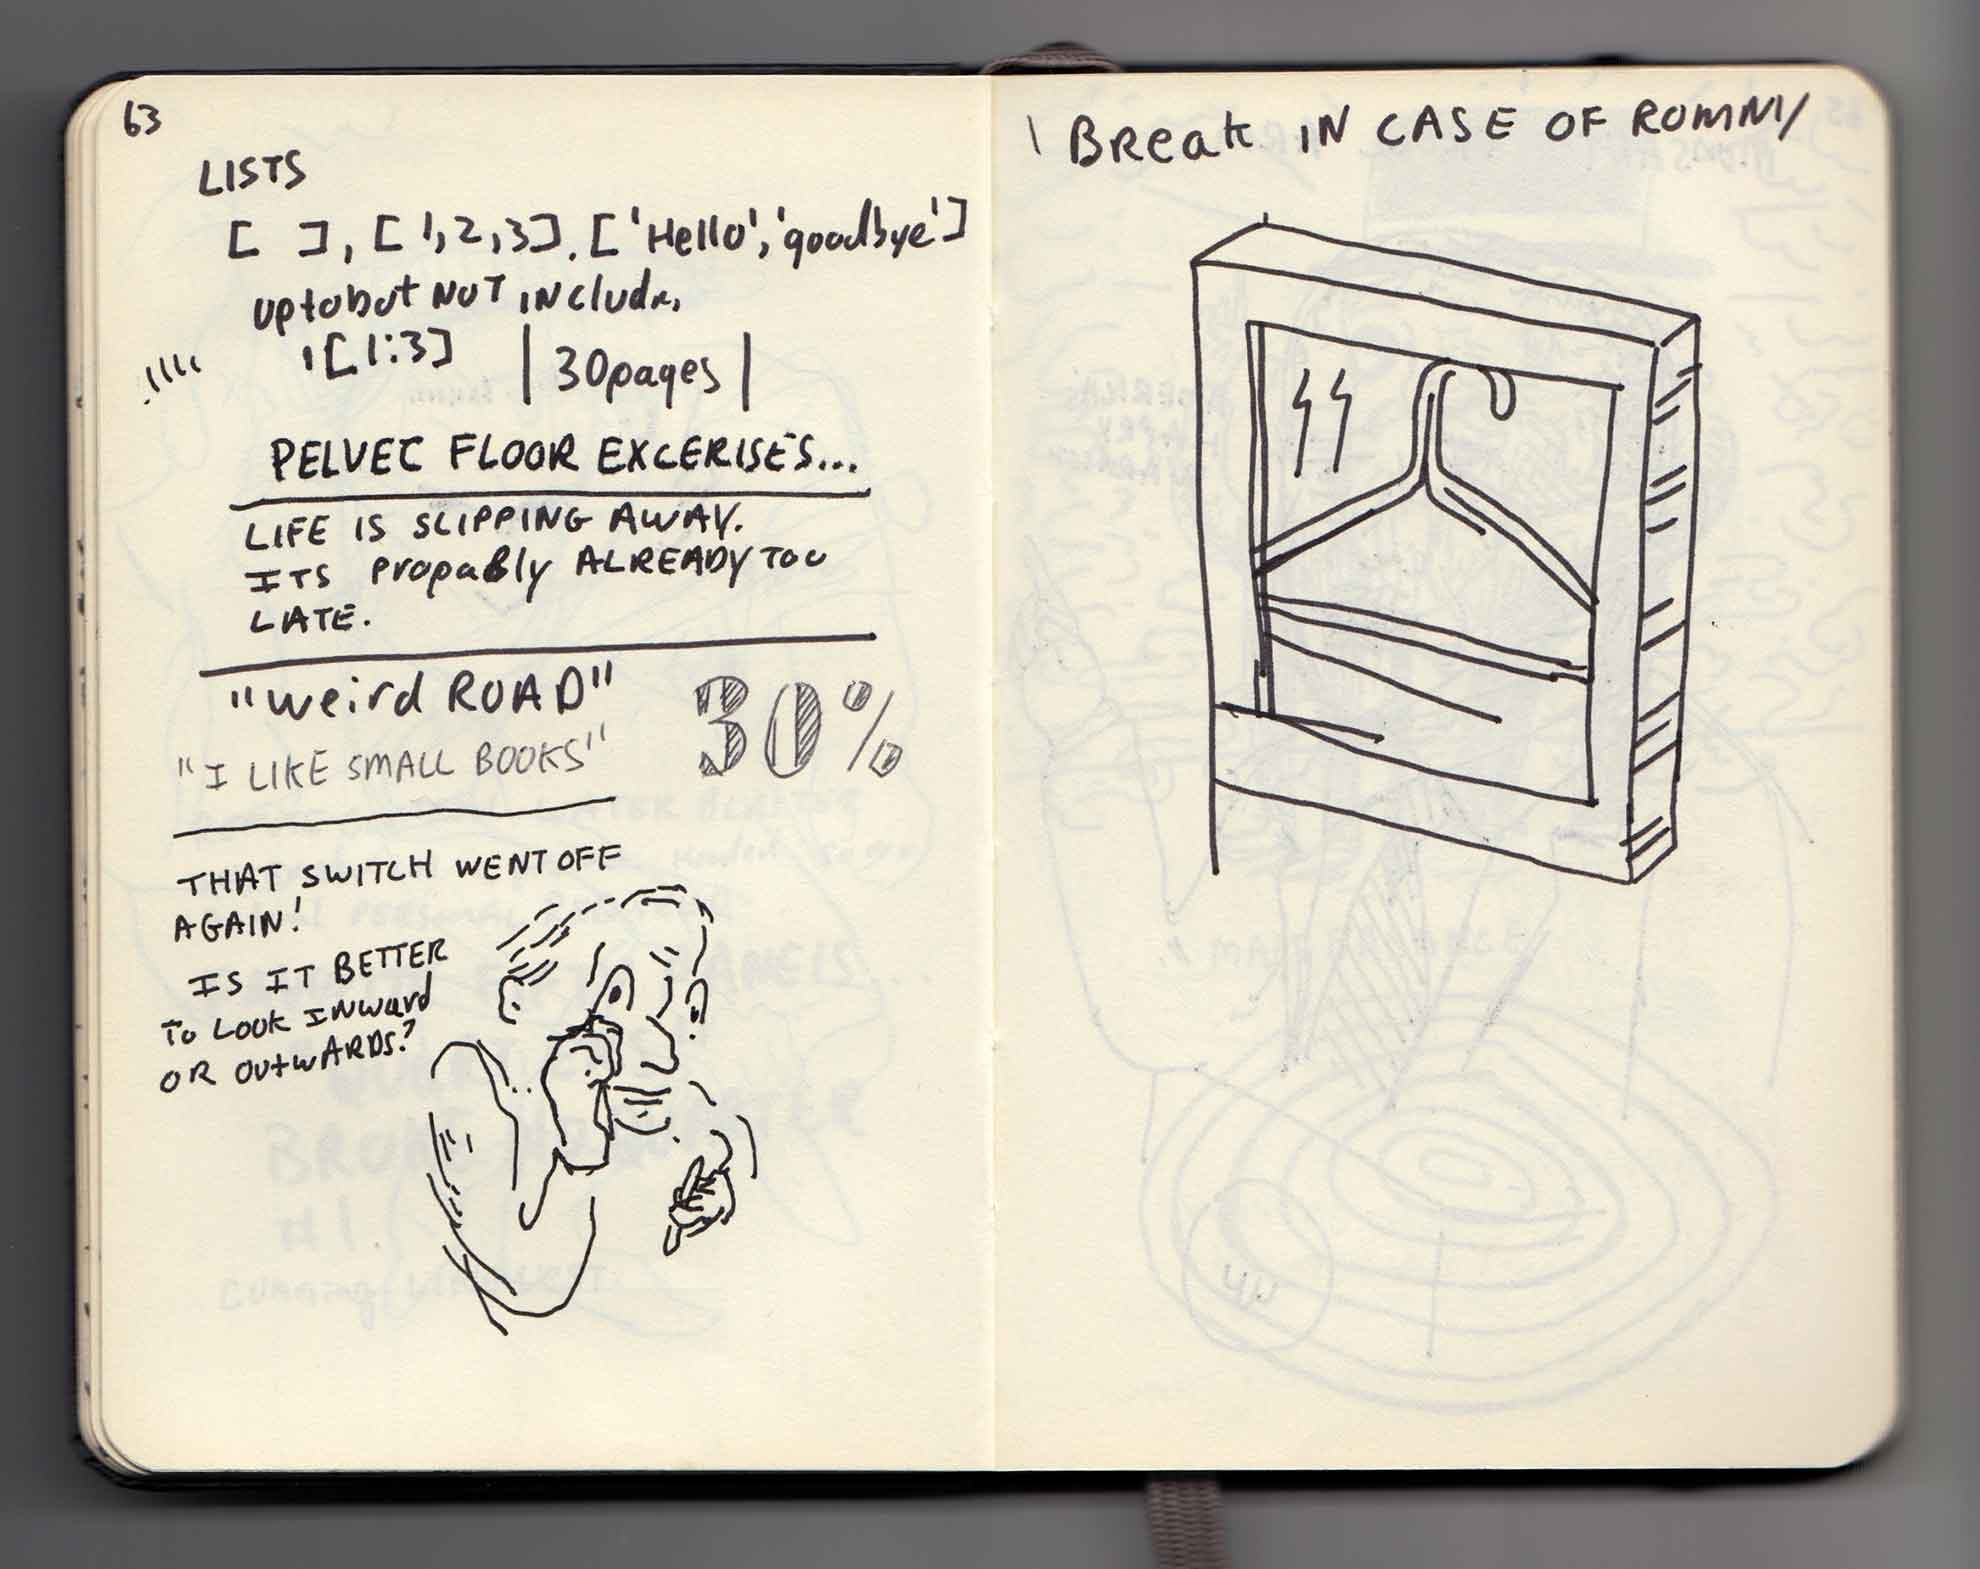 63
LISTS
[ ], [1,2,3], ['Hello','goodbye']
up to but NOT include,
[1:3] |30pages|
PELVEC FLOOR EXCERISES...
LIFE IS SLIPPING AWAY.
ITS PropaBly ALREADY TOO
LATE.
"weird ROAD"
30%
"I LIKE SMALL BOOKS"
THAT SWITCH WENT OFF
AGAIN!
IS IT BETTER
To LOOK INward
OR OutwARDS?
Break IN CASE OF ROMNY